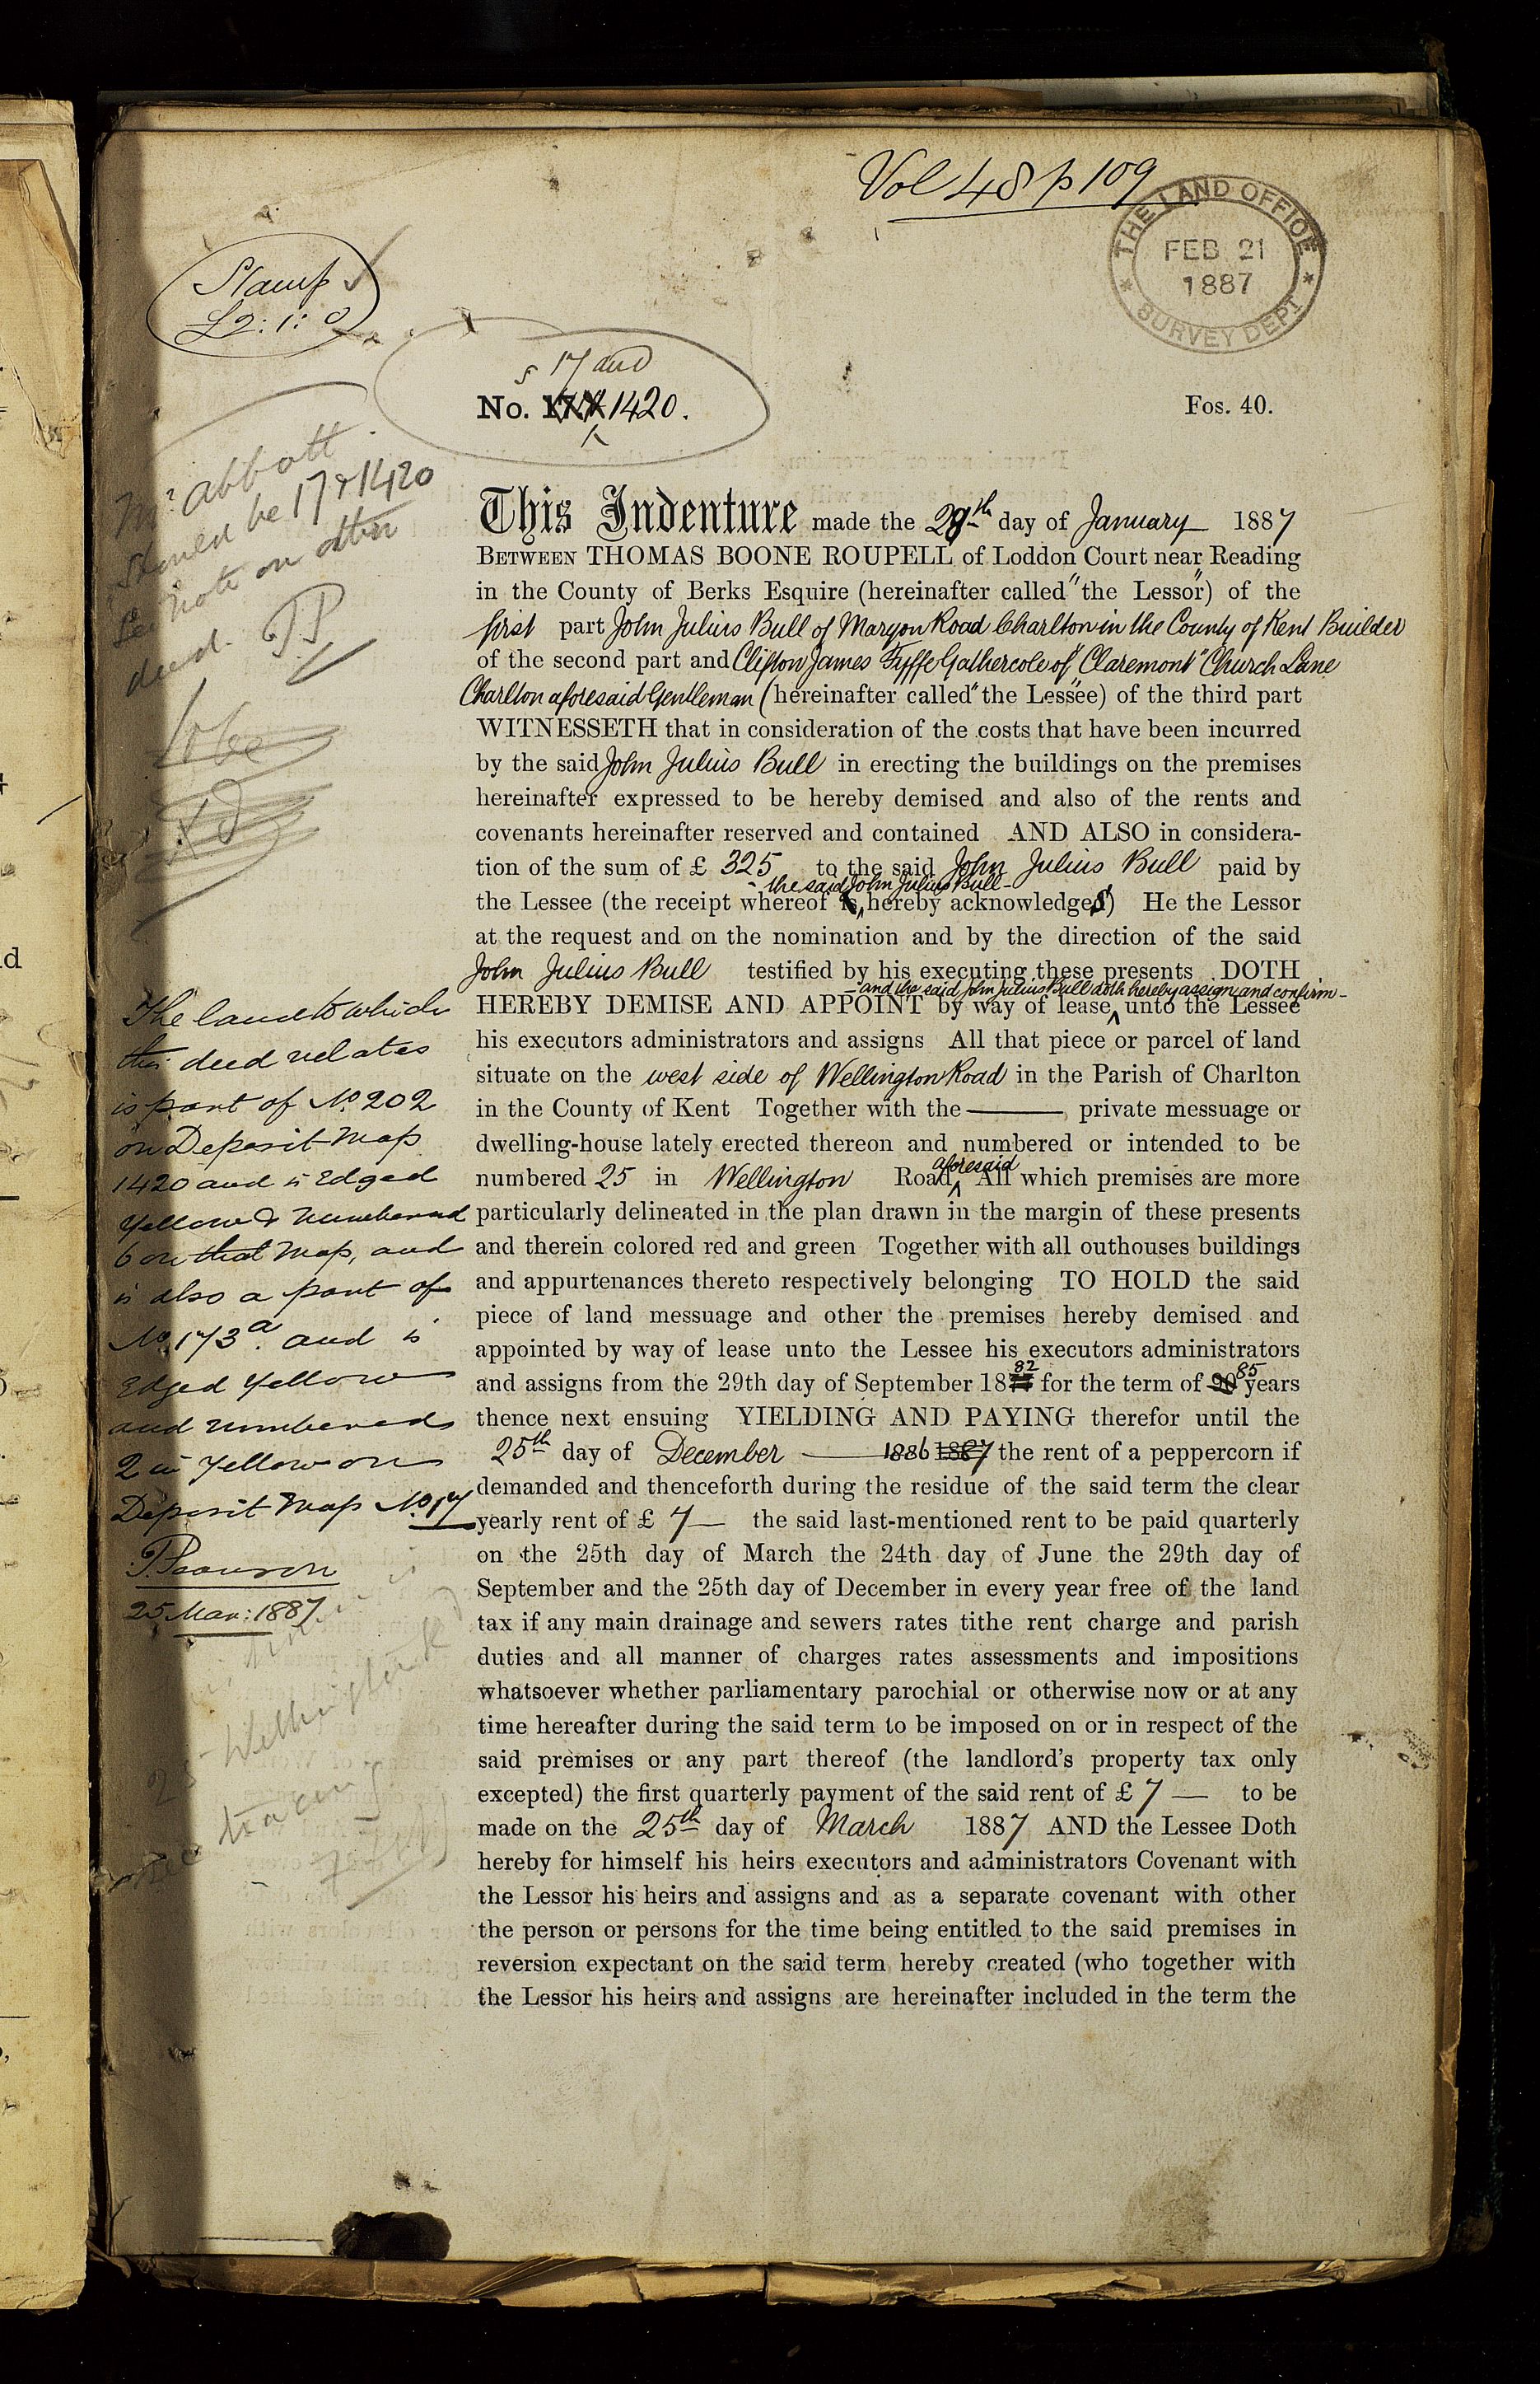 Vol 48 p 109
THE LAND OFFICE
FEB 21
1887
SURVEY DEPT
Stamp
£2:1:0
s 17 and
No. 1420.
Fos. 40.
Mr. Abbott
Should be 17 & 1420
See note on other
deed. P.P
This Indenture made the 28th day of January 1887
BETWEEN THOMAS BOONE ROUPELL of Loddon Court near Reading
in the County of Berks Esquire (hereinafter called "the Lessor") of the
first part John Julius Bull of Maryon Road Charlton in the County of Kent Builder
of the second part and Clifton James Fyffe Gathercole of "Claremont" Church Lane
Charlton aforesaid Gentleman (hereinafter called "the Lessee") of the third part
WITNESSETH that in consideration of the costs that have been incurred
by the said John Julius Bull in erecting the buildings on the premises
hereinafter expressed to be hereby demised and also of the rents and
covenants hereinafter reserved and contained AND ALSO in considera-
tion of the sum of £ 325 to the said John Julius Bull paid by
the said John Julius Bull
the Lessee (the receipt whereof hereby acknowledges) He the Lessor
at the request and on the nomination and by the direction of the said
John Julius Bull testified by his executing these presents DOTH
and the said John Julius Bull doth hereby assign and confirm
HEREBY DEMISE AND APPOINT by way of lease unto the Lessee
his executors administrators and assigns All that piece or parcel of land
situate on the west side of Wellington Road in the Parish of Charlton
in the County of Kent Together with the — private messuage or
dwelling-house lately erected thereon and numbered or intended to be
aforesaid
numbered 25 in Wellington Road All which premises are more
particularly delineated in the plan drawn in the margin of these presents
and therein colored red and green Together with all outhouses buildings
and appurtenances thereto respectively belonging TO HOLD the said
piece of land messuage and other the premises hereby demised and
appointed by way of lease unto the Lessee his executors administrators
82 85
and assigns from the 29th day of September 18 for the term of 90 years
thence next ensuing YIELDING AND PAYING therefor until the
25th day of December — 1886 1887 the rent of a peppercorn if
demanded and thenceforth during the residue of the said term the clear
yearly rent of £ 7 — the said last-mentioned rent to be paid quarterly
on the 25th day of March the 24th day of June the 29th day of
September and the 25th day of December in every year free of the land
tax if any main drainage and sewers rates tithe rent charge and parish
duties and all manner of charges rates assessments and impositions
whatsoever whether parliamentary parochial or otherwise now or at any
time hereafter during the said term to be imposed on or in respect of the
said premises or any part thereof (the landlord's property tax only
excepted) the first quarterly payment of the said rent of £ 7 — to be
made on the 25th day of March 1887 AND the Lessee Doth
hereby for himself his heirs executors and administrators Covenant with
the Lessor his heirs and assigns and as a separate covenant with other
the person or persons for the time being entitled to the said premises in
reversion expectant on the said term hereby created (who together with
the Lessor his heirs and assigns are hereinafter included in the term the
The land to which
this deed relates
is part of No. 202
on Deposit Map
1420 and is Edged
Yellow & numbered
6 on that Map, and
is also a part of
No. 173a. and is
Edged Yellow
and numbered
2 in Yellow on
Deposit Map No. 17
25 Mar: 1887
25 Wellington Rd
tracing